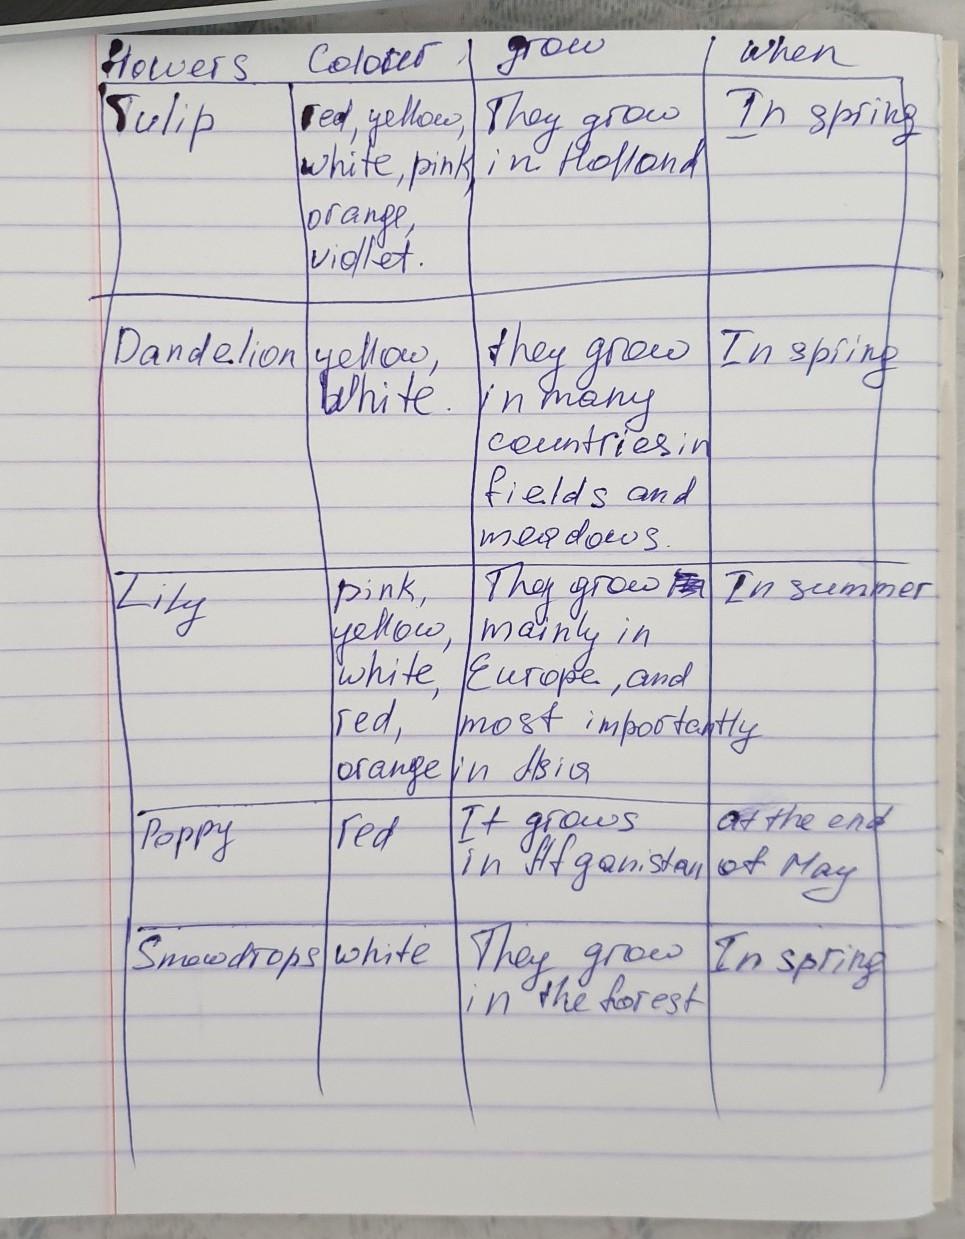 Flowers Colour grow when
Tulip red, yellow, They grow In spring
white, pink, in Holland
orange,
viollet.
Dandelion yellow, they grow In spring
White. in many
countries in
fields and
meadows.
Lily pink, They grow In summer
yellow, mainly in
white, Europe, and
red, most importantly
orange in Asia
Poppy red It grows at the end
in Afganistan of May
Snowdrops white They grow In spring
in the forest